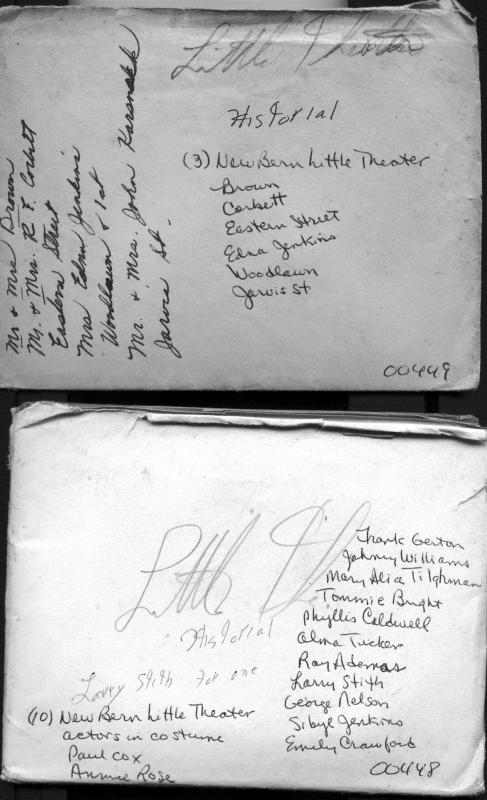 Little Theatre
Historial
(3) New Bern Little Theater
Brown
Corbett
Eastern Street
Edna Jenkins
Woodlawn
Jarvis St
00449
Mr & Mrs Brown
Mr. & Mrs. R F. Corbett
Eastern Street
Mrs Edna Jenkins
Woodlawn & 1st
Mr. & Mrs. John
Jarvis St.
Little
Historial
Larry Stith for one
(10) New Bern Little Theater
actors in costume
Paul Cox
Annie Rose
Frank Gerton
Johnny Williams
Mary Alia Tilghman
Tommie Bright
Phyllis Caldwell
Alma Tucker
Ray Ademas
Larry Stith
George Nelson
Sibyl Jenkins
Emily Crawford
00448